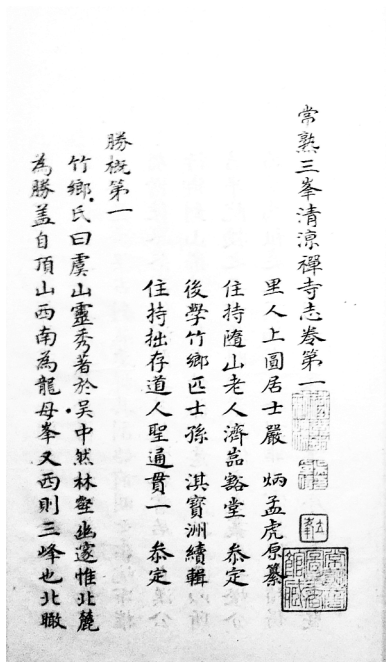 常熟三峯清涼禪寺志卷第一
里人上圓居士嚴 炳孟虎原纂
住持隨山老人濟嵓豁堂 叅定
後學竹鄉匹士孫 淇寶洲續輯
住持拙存道人聖通貫一 叅定
勝概第一
竹鄉氏曰虞山靈秀著於吳中然林壑幽邃惟北麓
為勝盖自頂山西南為龍母峯又西則三峰也北瞰